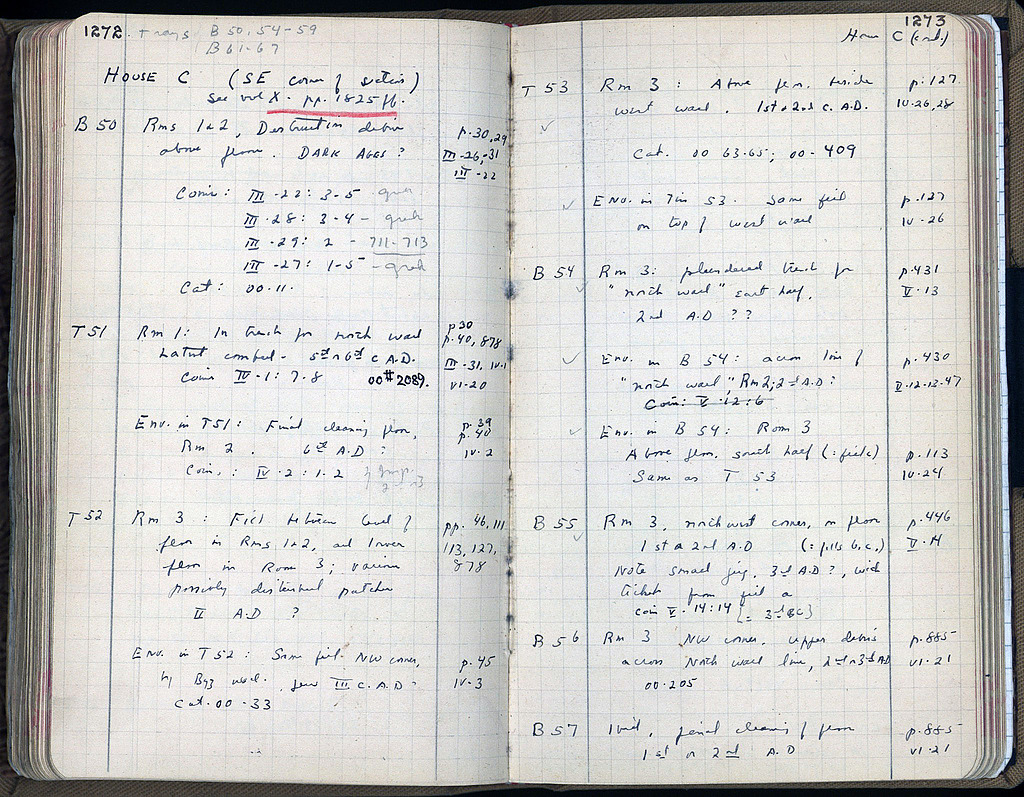 1272. Trays B 50, 54-59
B 61-67
HOUSE C (SE corner of section)
see vol X. pp. 1825 ff.
B 50 Rms 1+2, Destruction debris p. 30, 29
above floor. DARK AGES? III-26,-31
III-22
Coins: III-22: 3-5
III-28: 3-4 -
III-29: 2 - 711-713
III-27: 1-5 -
Cat: 00.11.
T 51 Rm 1: In trench for north wall p 30
p. 40, 878
Latest 5th or 6th c A.D. III-31, IV-1
Coins IV-1: 7-8 00#2089. VI-20
Env. in T51: Final cleaning floor, p. 39
p. 40
Rm 2. 6th A.D? IV-2
Coins: IV-2: 1-2
T 52 Rm 3: Fill between level of pp. 46, 111
floor in Rms 1+2, and lower 113, 127,
floor in Room 3; various 878
possibly disturbed patches
II A.D ?
Env. in T52: Same fill NW corner, p. 45
by Byz wall. few III c. A.D? IV-3
Cat. 00-33
1273
House C (cont.)
T 53 Rm 3: Above floor, beside p. 127
west wall. 1st + 2nd C. A.D. IV-26, 28
Cat. 00 63-65; 00-409
Env. in Tin 53. Same fill p. 127
on top of west wall IV-26
B 54 Rm 3: plundered trench for p. 431
"north wall" east half. V-13
2nd A.D ??
Env. in B 54: across line of p. 430
"north wall", Rm 2; 2nd A.D? V-12-13-47
Coin: V-12:6
Env. in B 54: Room 3
Above floor, south half (: fields) p. 113
Same as T 53 IV-24
B 55 Rm 3, northwest corner, on floor p. 446
1st or 2nd A.D V-14
Note small jug, 3rd A.D?, with
ticket from fill a
coin V-14:14
B 56 Rm 3 NW corner, upper debris p. 885
across North wall line, 2nd or 3rd AD VI-21
00-205
B 57 Ibid, final cleaning of floor p. 885
1st or 2nd A.D VI-21